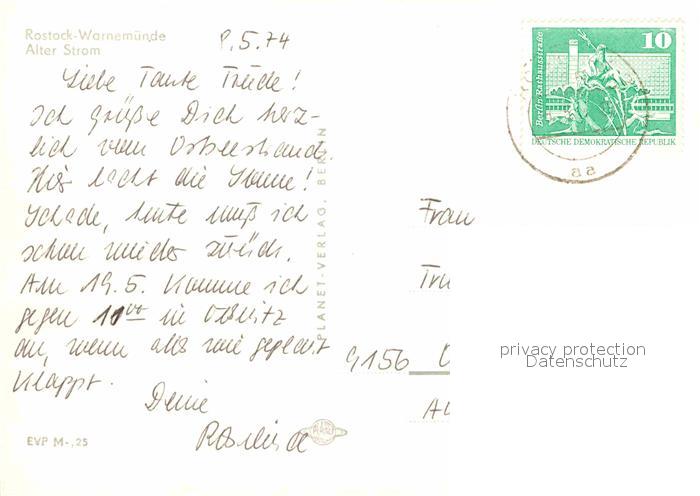 Rostock-Warnemünde
Alter Strom
8.5.74
Liebe Tante Trude!
Ich grüße Dich herz-
lich vom Ostseestrand.
Hier lacht die Sonne!
Schade, heute muß ich
schon wieder zurück.
Am 19.5. komme ich
gegen 11⁰⁰ in Oelsnitz
an, wenn alles wie geplant
klappt.
Deine
EVP M -,25
PLANET-VERLAG, BERLIN
Berlin, Rathausstraße
10
DEUTSCHE DEMOKRATISCHE REPUBLIK
Frau
Tru
9156
privacy protection
Datenschutz